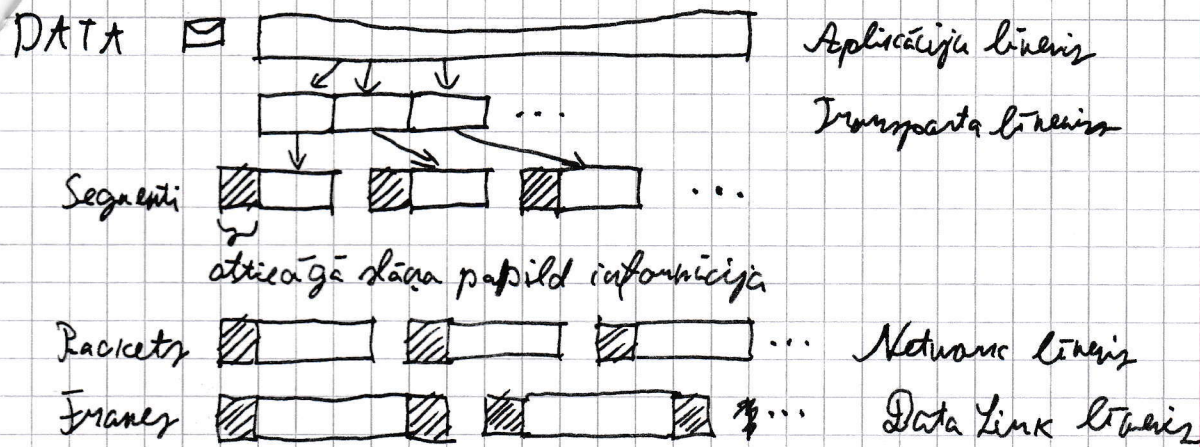 DATA Aplikāciju līmenis
Transporta līmenis
Segmenti
attiecāgā slāņa papild informācija
Packets Network līmenis
Frames Data Link līmenis